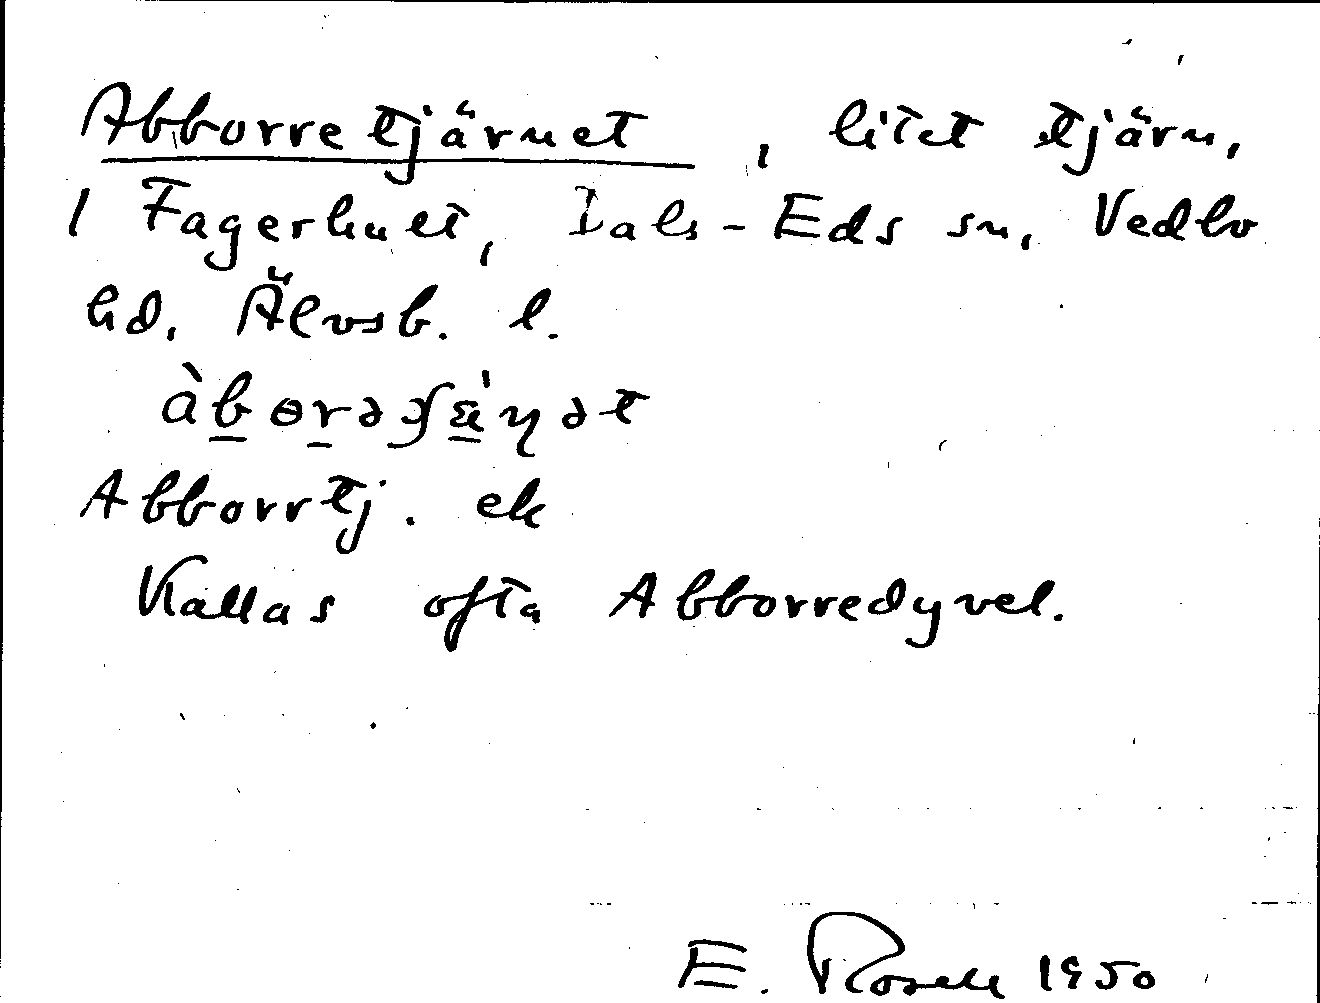 Abborretjärnet, litet tjärn,
1 Fagerhult, Dals-Eds sn, Vedbo
hd. Älvsb. l.
Abborrtj. ek
Kallas ofta Abborredyvel.
E. Rosell 1950